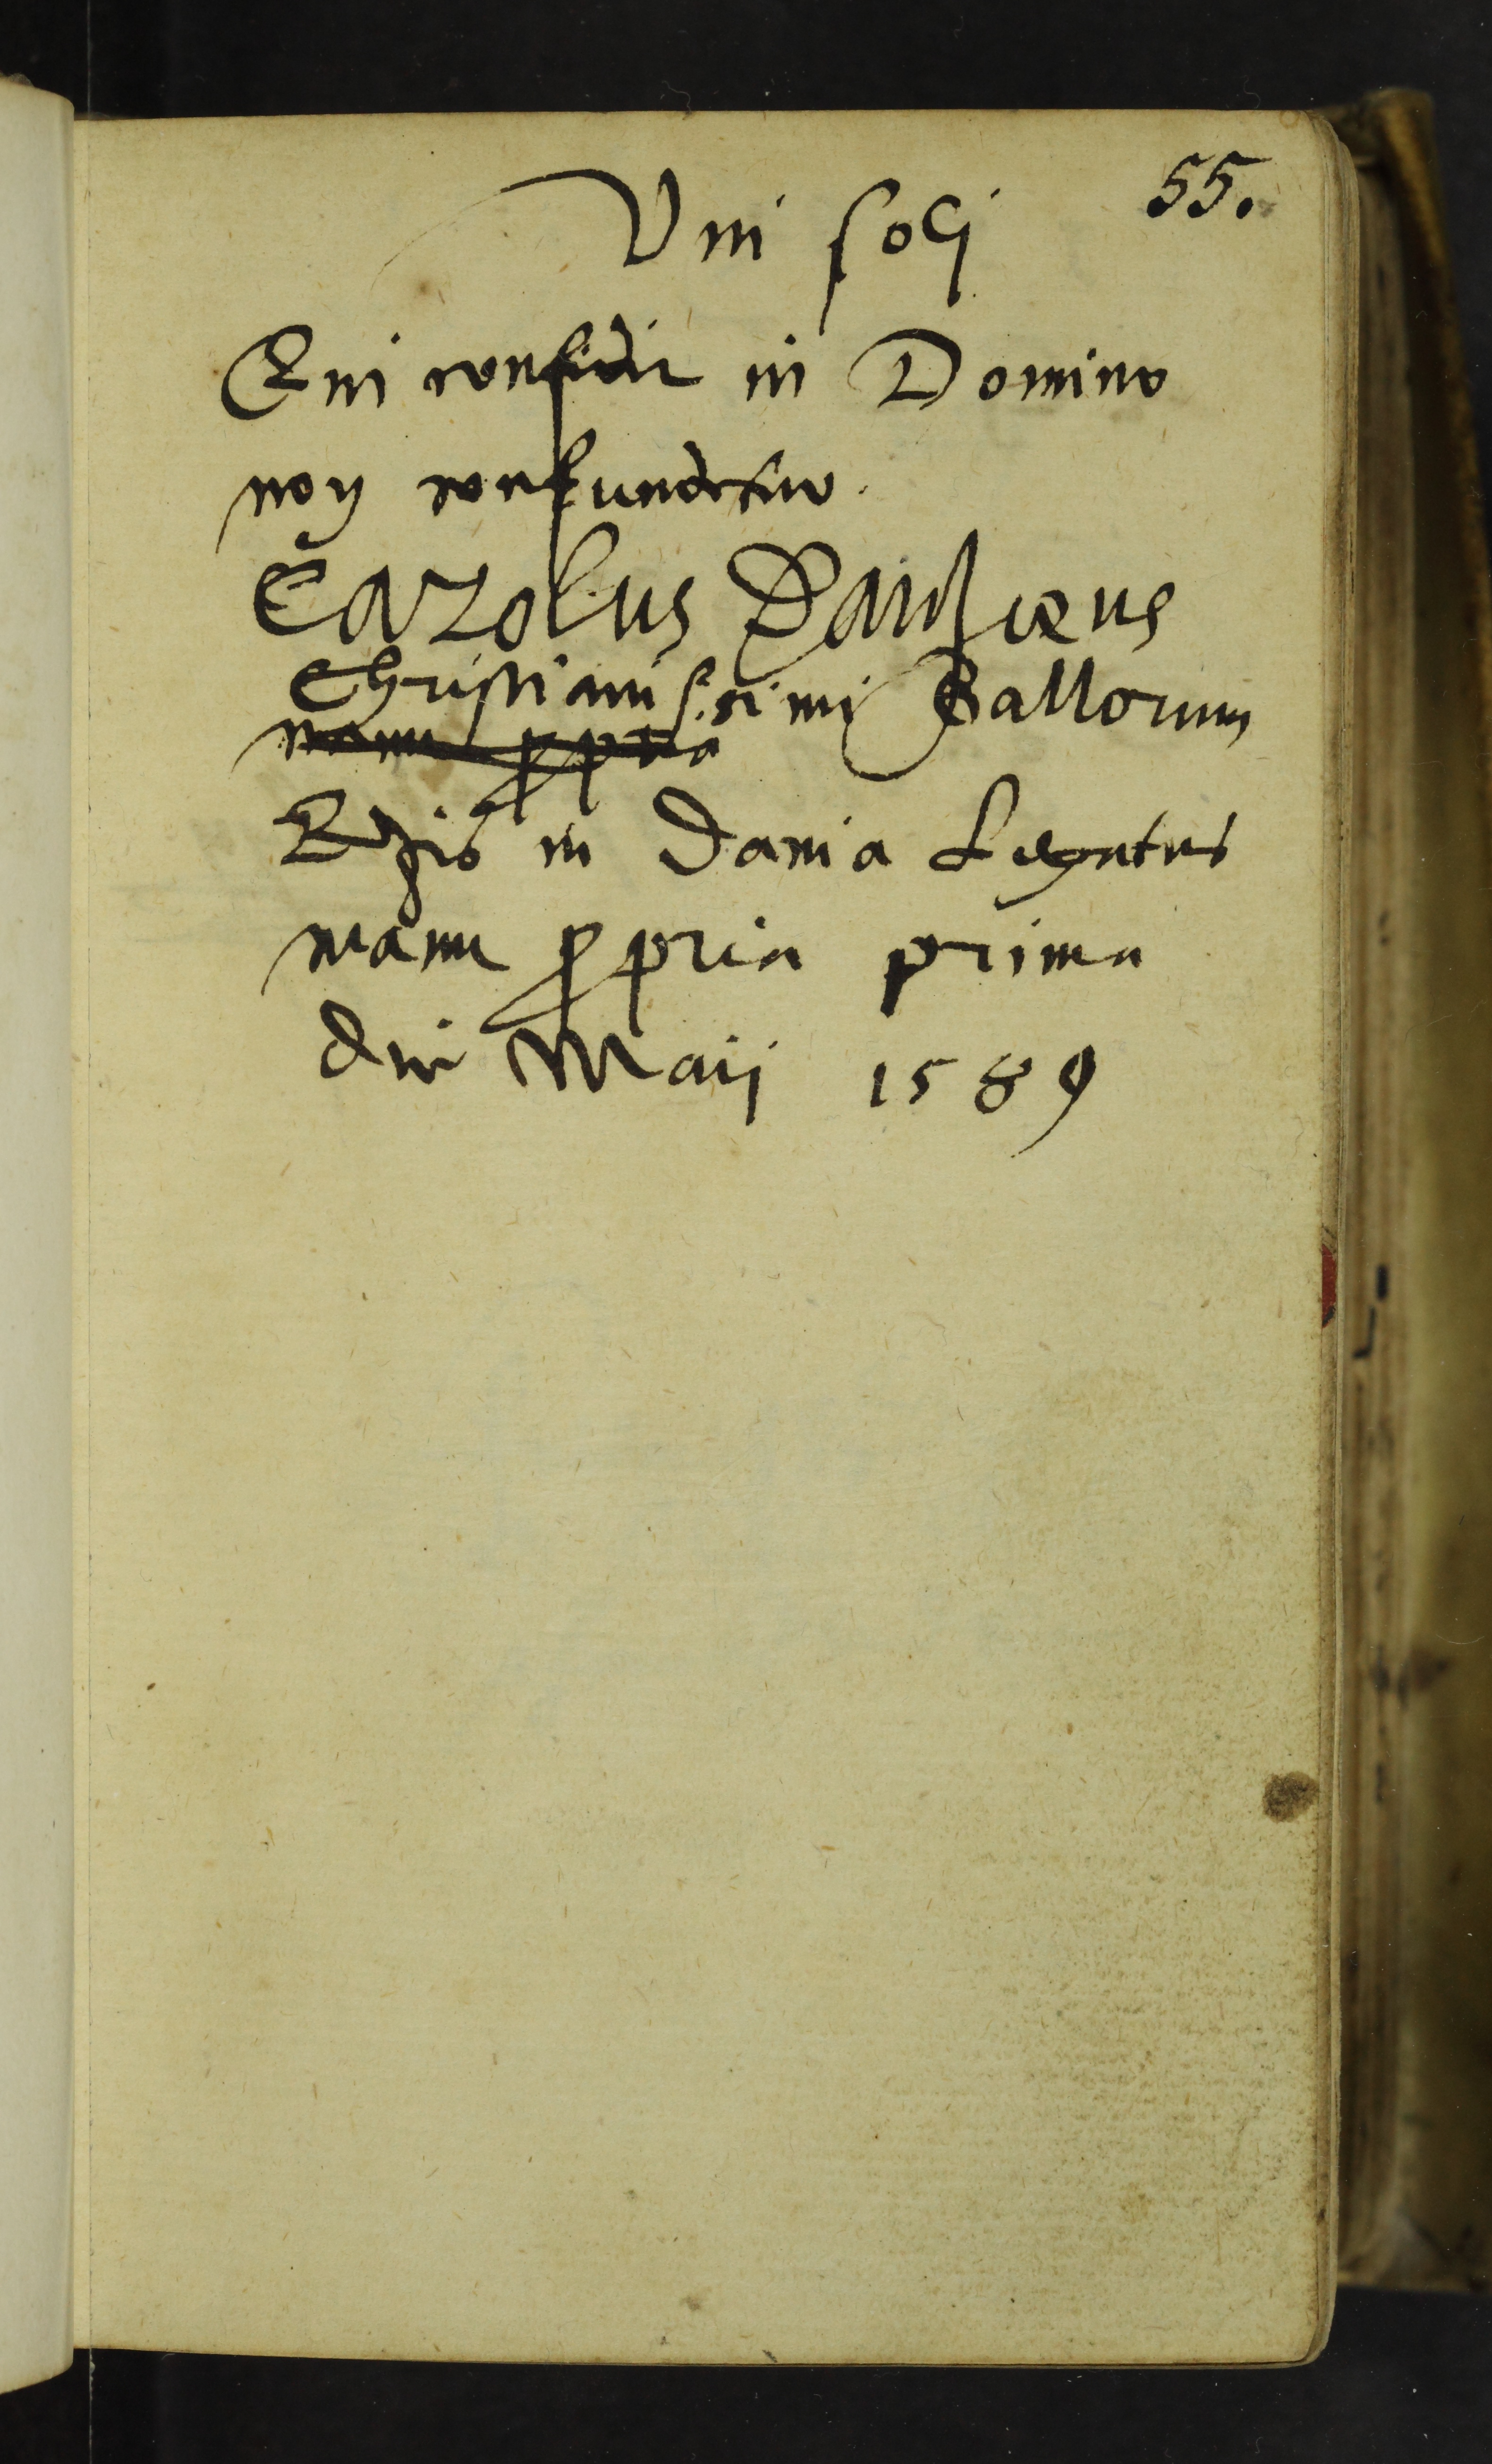 55.
Vni soli
Qui confidit in Domino
non confundetur.
Carolus Danzæus
Christianissimi Gallorum
manu propria
Regis in Dania Legatus
manu propria prima
die Maij 1589